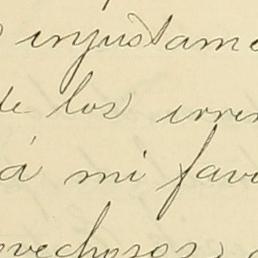 injustame
de los irre
á mi favo
vechosos,